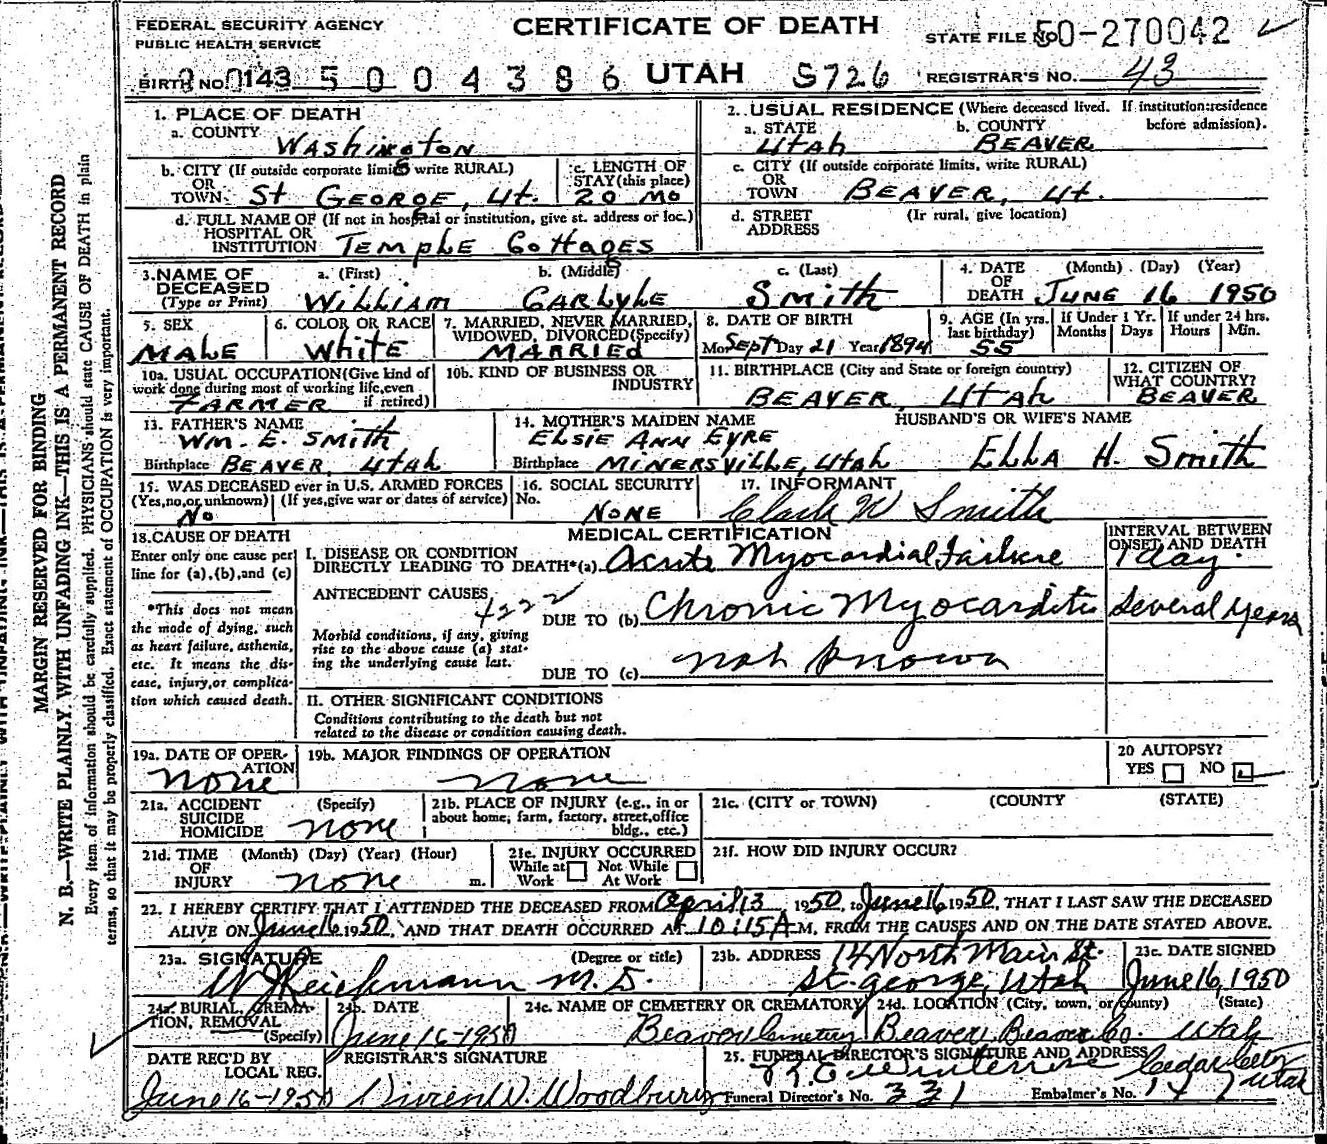 FEDERAL SECURITY AGENCY
PUBLIC HEALTH SERVICE
CERTIFICATE OF DEATH
STATE FILE No 50-270042
BIRTH NO. 0143 5004386 UTAH S726 REGISTRAR'S NO. 43
1. PLACE OF DEATH
a. COUNTY
Washington
2. USUAL RESIDENCE (Where deceased lived. If institution:residence before admission).
a. STATE b. COUNTY
Utah BEAVER
b. CITY (If outside corporate limits write RURAL)
OR
TOWN St GEORGE, Ut.
c. LENGTH OF
STAY (this place)
20 Mo
c. CITY (If outside corporate limits, write RURAL)
OR
TOWN BEAVER, Ut.
d. FULL NAME OF (If not in hospital or institution, give st. address or loc.)
HOSPITAL OR
INSTITUTION Temple Cottages
d. STREET (Ir rural, give location)
ADDRESS
3. NAME OF DECEASED
(Type or Print)
a. (First) b. (Middle) c. (Last)
William Carlyle Smith
4. DATE OF DEATH (Month) (Day) (Year)
JUNE 16 1950
5. SEX
MALE
6. COLOR OR RACE
White
7. MARRIED, NEVER MARRIED,
WIDOWED, DIVORCED(Specify)
MARRIED
8. DATE OF BIRTH
Mo Sept Day 21 Year 1894
9. AGE (In yrs. last birthday)
55
If Under 1 Yr.
Months Days
If under 24 hrs.
Hours Min.
10a. USUAL OCCUPATION (Give kind of work done during most of working life, even if retired)
FARMER
10b. KIND OF BUSINESS OR
INDUSTRY
11. BIRTHPLACE (City and State or foreign country)
BEAVER, UTAH
12. CITIZEN OF
WHAT COUNTRY?
BEAVER
13. FATHER'S NAME
Wm. E. Smith
Birthplace BEAVER, Utah
14. MOTHER'S MAIDEN NAME
ELSIE ANN EYRE
Birthplace MINERSVILLE, Utah
HUSBAND'S OR WIFE'S NAME
ELLA H. Smith
15. WAS DECEASED ever in U.S. ARMED FORCES
(Yes, no, or unknown) (If yes, give war or dates of service)
No
16. SOCIAL SECURITY
No.
NONE
17. INFORMANT
Clark W Smith
18. CAUSE OF DEATH
Enter only one cause per
line for (a), (b), and (c)
*This does not mean
the mode of dying, such
as heart failure, asthenia,
etc. It means the dis-
ease, injury, or complica-
tion which caused death.
MEDICAL CERTIFICATION
INTERVAL BETWEEN
ONSET AND DEATH
I. DISEASE OR CONDITION
DIRECTLY LEADING TO DEATH*(a) Acute Myocardial Failure 1 day
ANTECEDENT CAUSES
4222
Morbid conditions, if any, giving
rise to the above cause (a) stat-
ing the underlying cause last.
DUE TO (b) Chronic Myocarditis Several years
DUE TO (c) not known
II. OTHER SIGNIFICANT CONDITIONS
Conditions contributing to the death but not
related to the disease or condition causing death.
19a. DATE OF OPER-
ATION
none
19b. MAJOR FINDINGS OF OPERATION
none
20 AUTOPSY?
YES NO
21a. ACCIDENT (Specify)
SUICIDE
HOMICIDE none
21b. PLACE OF INJURY (e.g., in or
about home, farm, factory, street, office
bldg., etc.)
21c. (CITY or TOWN) (COUNTY (STATE)
21d. TIME (Month) (Day) (Year) (Hour)
OF
INJURY none m.
21e. INJURY OCCURRED
While at Work Not While At Work
21f. HOW DID INJURY OCCUR?
22. I HEREBY CERTIFY THAT I ATTENDED THE DECEASED FROM April 13, 1950, to June 16 1950, THAT I LAST SAW THE DECEASED
ALIVE ON June 16 1950, AND THAT DEATH OCCURRED AT 10:15 A M, FROM THE CAUSES AND ON THE DATE STATED ABOVE.
23a. SIGNATURE (Degree or title)
M.D.
23b. ADDRESS 14 North Main St.
St. George, Utah
23c. DATE SIGNED
June 16, 1950
24a. BURIAL, CREMA-
TION, REMOVAL
(Specify)
24b. DATE
June 16-1950
24c. NAME OF CEMETERY OR CREMATORY
Beaver Cemetery
24d. LOCATION (City, town, or county) (State)
Beaver, Beaver Co. Utah
DATE REC'D BY
LOCAL REG.
June 16-1950
REGISTRAR'S SIGNATURE
Vivien W. Woodbury
25. FUNERAL DIRECTOR'S SIGNATURE AND ADDRESS
Cedar City
Utah
Funeral Director's No. 331 Embalmer's No.
MARGIN RESERVED FOR BINDING
N. B.—WRITE PLAINLY, WITH UNFADING INK—THIS IS A PERMANENT RECORD
Every item of information should be carefully supplied. PHYSICIANS should state CAUSE OF DEATH in plain
terms, so that it may be properly classified. Exact statement of OCCUPATION is very important.